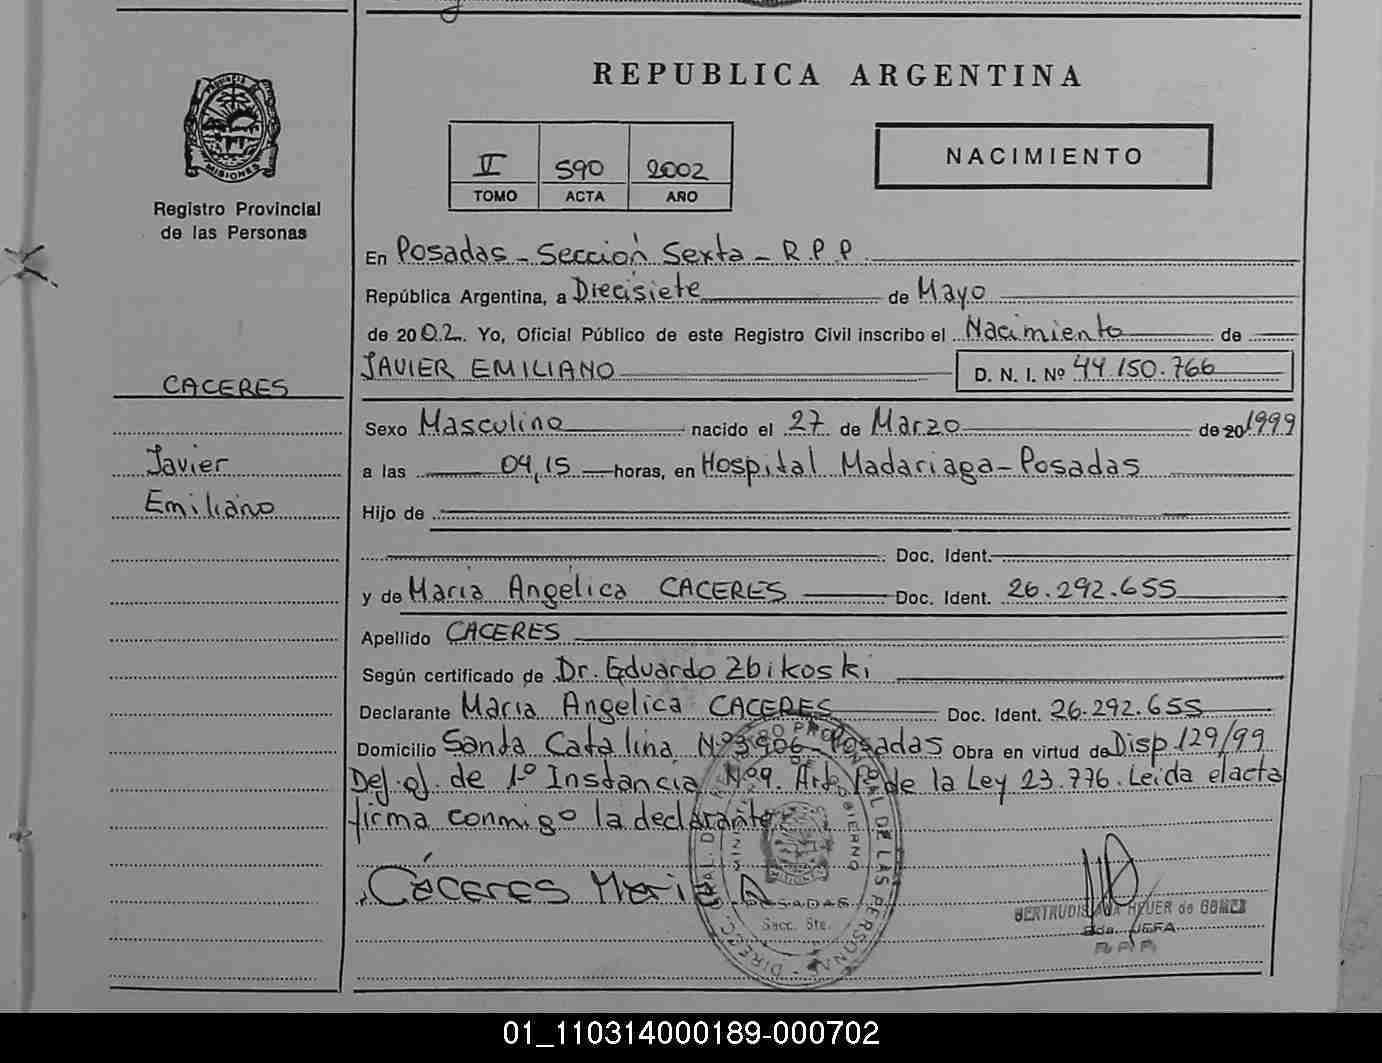 REPUBLICA ARGENTINA
MISIONES
Registro Provincial
de las Personas
II 590 2002
TOMO ACTA AÑO
NACIMIENTO
En Posadas - Sección Sexta - R.P.P.
República Argentina, a Diecisiete de Mayo
de 2002. Yo, Oficial Público de este Registro Civil inscribo el Nacimiento de
JAVIER EMILIANO D. N. I. Nº 44.150.766
CACERES
Javier
Emiliano
Sexo Masculino nacido el 27 de Marzo de 20 1999
a las 04,15 horas, en Hospital Madariaga - Posadas
Hijo de
Doc. Ident.
y de María Angélica CACERES Doc. Ident. 26.292.655
Apellido CACERES
Según certificado de Dr. Eduardo Zbikoski
Declarante María Angelica CACERES Doc. Ident. 26.292.655
Domicilio Santa Catalina Nº 3906 - Posadas Obra en virtud de Disp 129/99
Def. of. de 1º Instancia Nº 9. de la Ley 23.776. Leída el acta
firma conmigo la declarante
Cáceres María A
POSADAS
Secc. 6ta.
GERTRUDIS HEUER de GOMEZ
JEFA
R P P
01_110314000189-000702